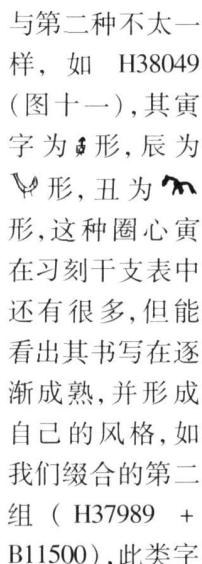 与第二种不太一
样，如 H38049
(图十一),其寅
字为形,辰为
形,丑为
形,这种圈心寅
在习刻干支表中
还有很多,但能
看出其书写在逐
渐成熟,并形成
自己的风格,如
我们缀合的第二
组（H37989 +
B11500),此类字